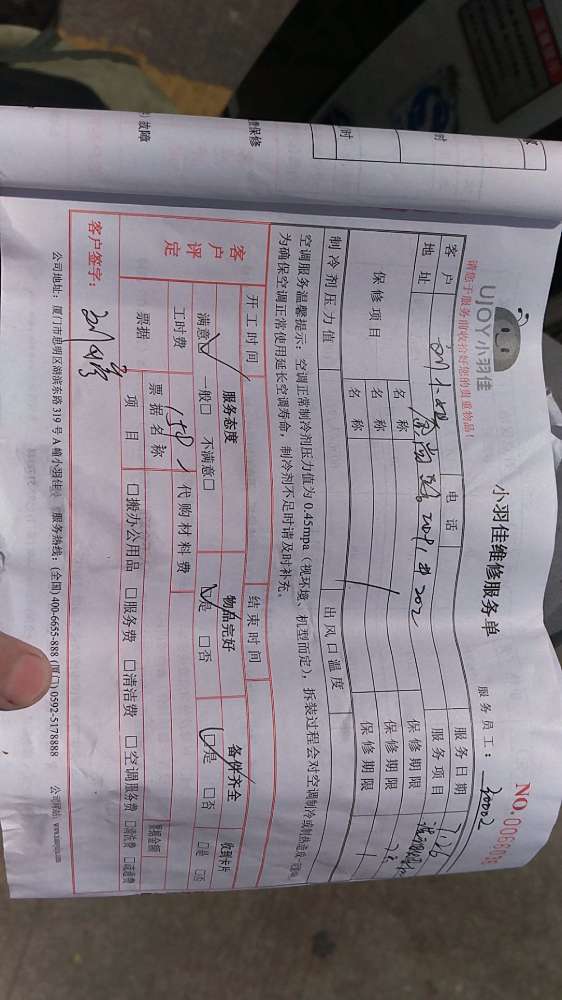 UJOY小羽佳
小羽佳维修服务单
NO.
请您于服务前收拾好您的贵重物品!
服务员工:
30002
客户
电话
服务日期
7.26
地址
服务项目
保修项目
名称
保修期限
名称
保修期限
名称
保修期限
制冷剂压力值
出风口温度
空调服务温馨提示:空调正常制冷剂压力值为 0.45mpa(视环境、机型而定),拆装过程会对空调制冷或制热造成
为确保空调正常使用延长空调寿命,制冷剂不足时请及时补充。
客户评定
开工时间
结束时间
服务态度
物品完好
备件齐全
收到卡片
满意 一般□ 不满意□
□是 □否
□是 □否
□是 □否
工时费
150
代购材料费
票据
票据名称
票据金额
项目
□搬办公用品 □服务费 □清洁费 □空调服务费
客户签字:
公司地址:厦门市思明区湖滨东路 319 号 A 幢小羽佳 服务热线:(全国) 400-6655-888 (厦门) 0592-5178888
公司网站:
故障
费保修
时
时